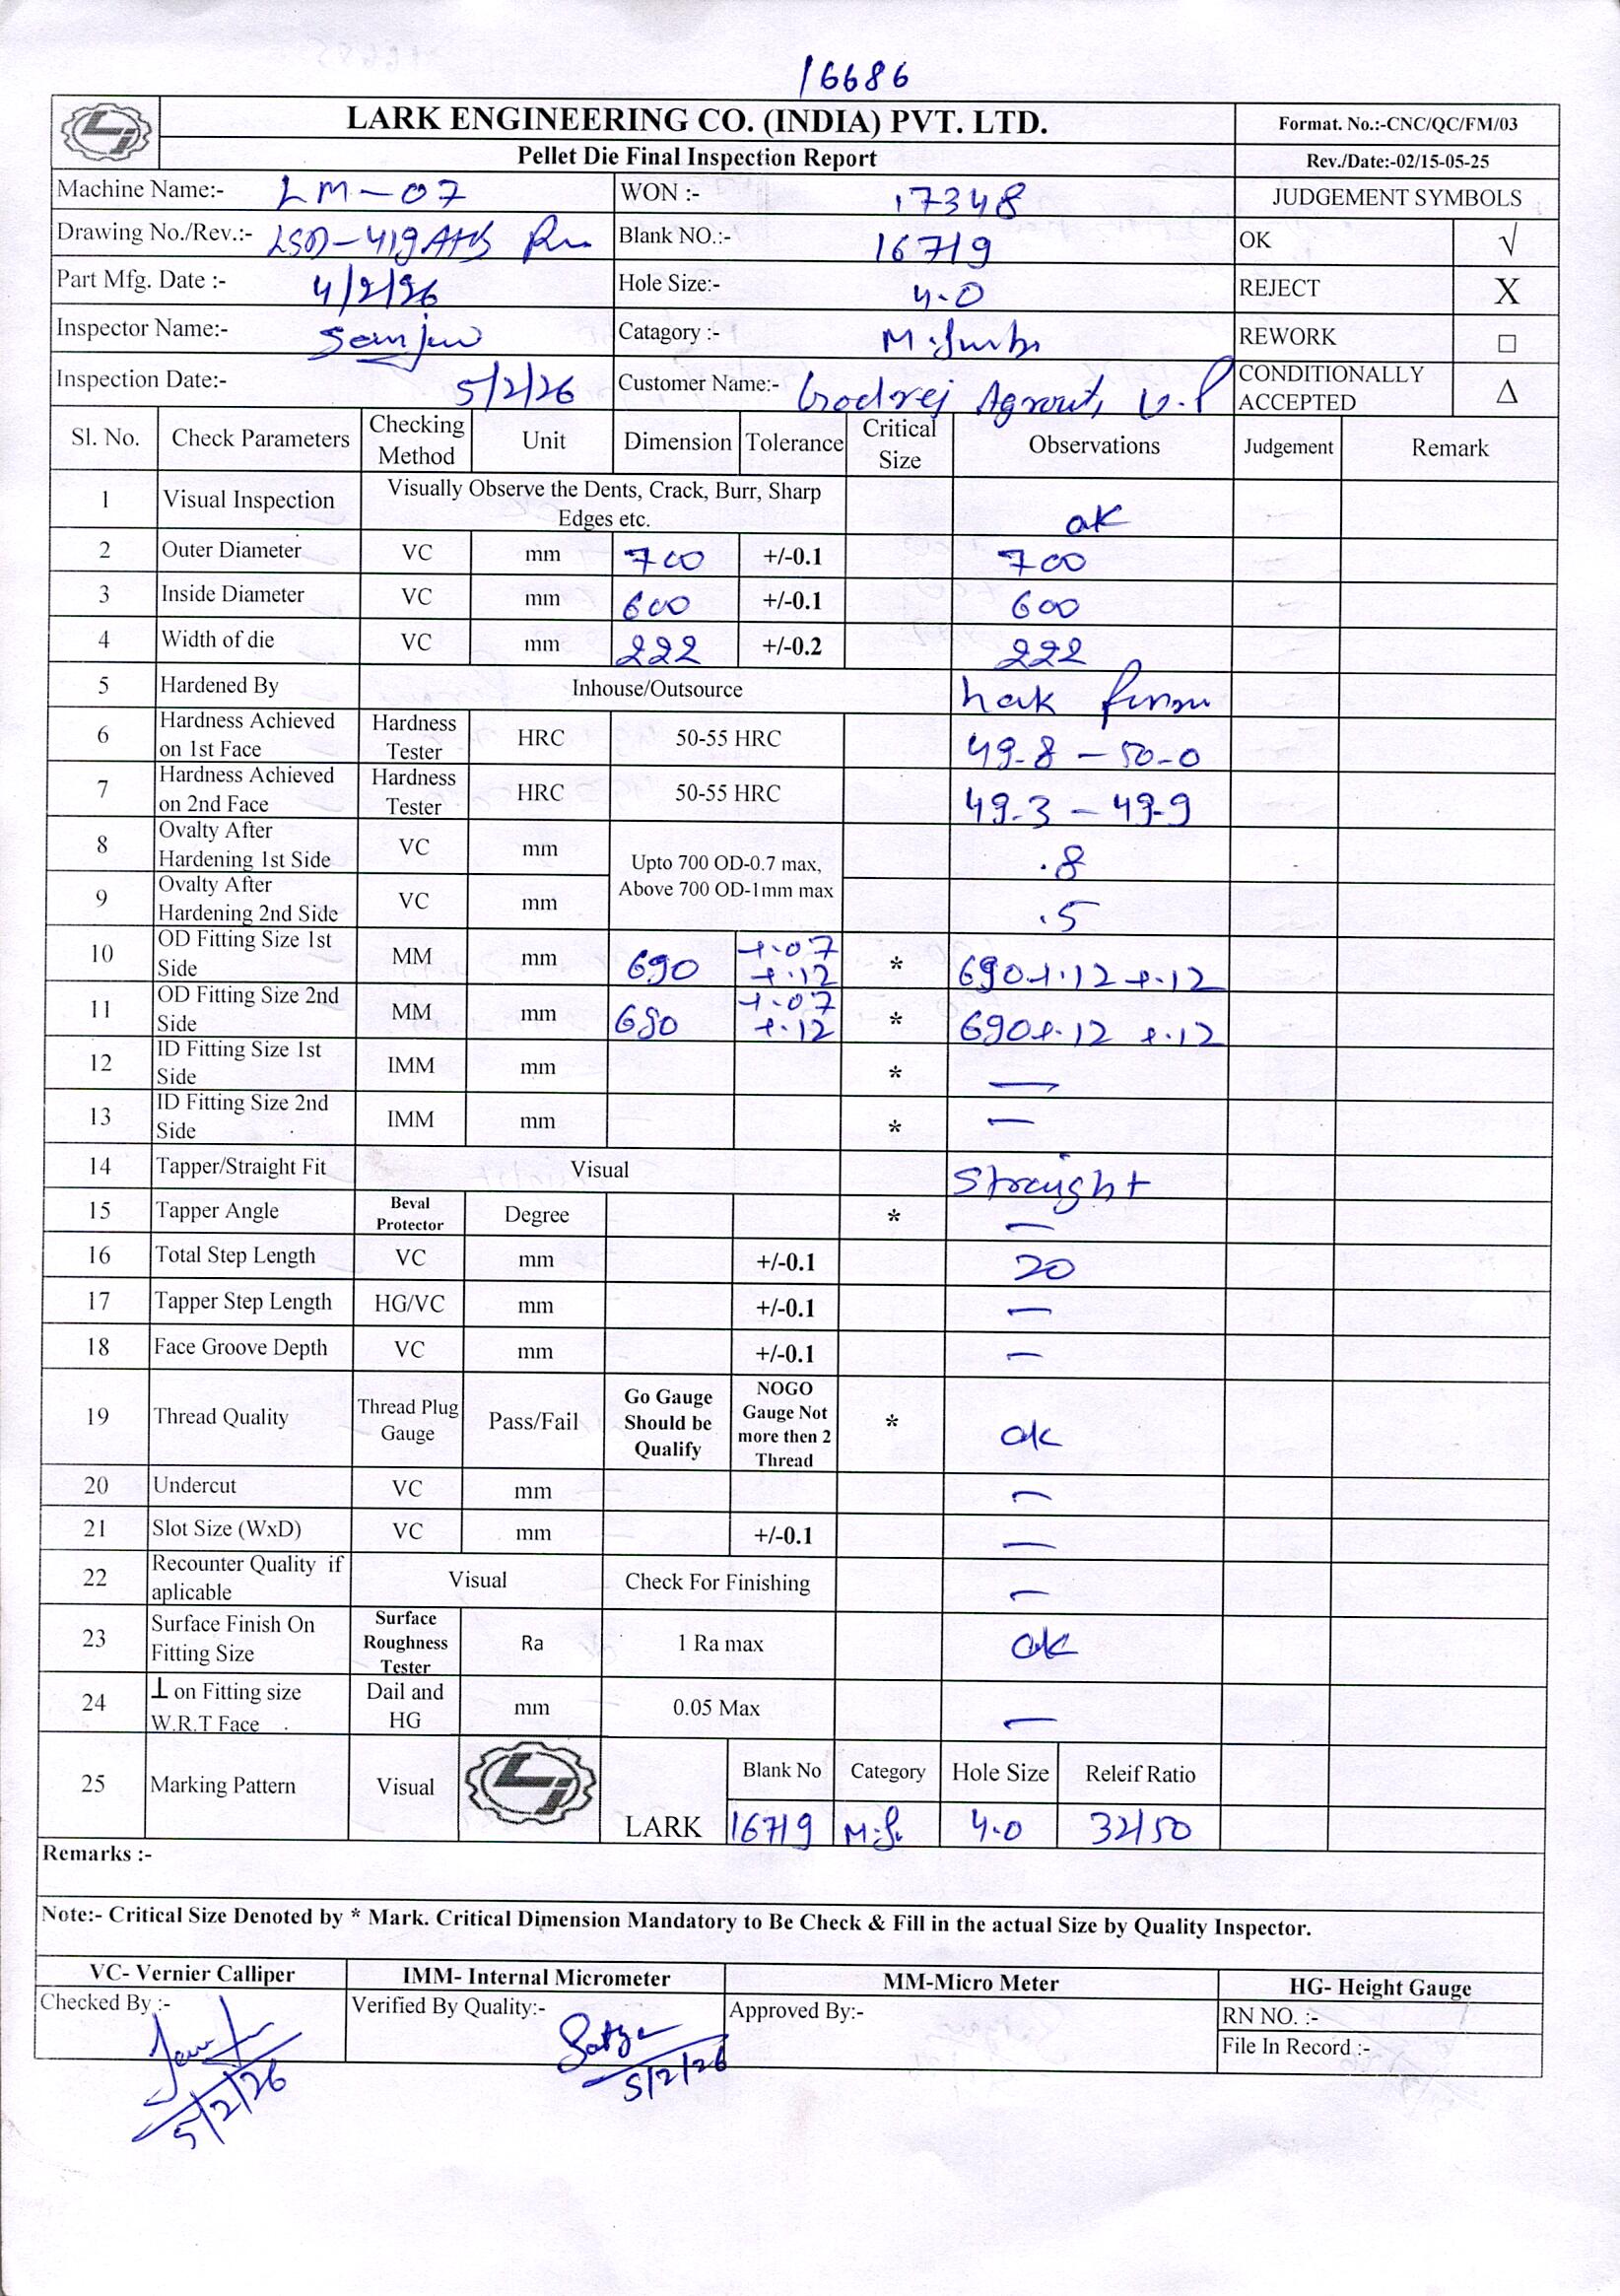 16686
LARK ENGINEERING CO. (INDIA) PVT. LTD. Format. No.:-CNC/QC/FM/03
Pellet Die Final Inspection Report Rev./Date:-02/15-05-25
Machine Name:- LM-07 WON :- 17348 JUDGEMENT SYMBOLS
Drawing No./Rev.:- Blank NO.:- 16719 OK √
Part Mfg. Date :- 4/2/26 Hole Size:- 4.0 REJECT X
Inspector Name:- Sanjew Catagory :- REWORK □
Inspection Date:- 5/2/26 Customer Name:- Godrej Agrovet, U.P CONDITIONALLY ACCEPTED Δ
Sl. No. Check Parameters Checking Method Unit Dimension Tolerance Critical Size Observations Judgement Remark
1 Visual Inspection Visually Observe the Dents, Crack, Burr, Sharp Edges etc. ok
2 Outer Diameter VC mm 700 +/-0.1 700
3 Inside Diameter VC mm 600 +/-0.1 600
4 Width of die VC mm 222 +/-0.2 222
5 Hardened By Inhouse/Outsource
6 Hardness Achieved on 1st Face Hardness Tester HRC 50-55 HRC 49.8 - 50.0
7 Hardness Achieved on 2nd Face Hardness Tester HRC 50-55 HRC 49.3 - 49.9
8 Ovalty After Hardening 1st Side VC mm Upto 700 OD-0.7 max, Above 700 OD-1mm max .8
9 Ovalty After Hardening 2nd Side VC mm .5
10 OD Fitting Size 1st Side MM mm 690 +.07 +.12 * 690+.12 +.12
11 OD Fitting Size 2nd Side MM mm 690 +.07 +.12 * 690+.12 +.12
12 ID Fitting Size 1st Side IMM mm * —
13 ID Fitting Size 2nd Side IMM mm * —
14 Tapper/Straight Fit Visual Straight
15 Tapper Angle Beval Protector Degree * —
16 Total Step Length VC mm +/-0.1 20
17 Tapper Step Length HG/VC mm +/-0.1 —
18 Face Groove Depth VC mm +/-0.1 —
19 Thread Quality Thread Plug Gauge Pass/Fail Go Gauge Should be Qualify NOGO Gauge Not more then 2 Thread * ok
20 Undercut VC mm —
21 Slot Size (WxD) VC mm +/-0.1 —
22 Recounter Quality if aplicable Visual Check For Finishing —
23 Surface Finish On Fitting Size Surface Roughness Tester Ra 1 Ra max ok
24 ⊥ on Fitting size W.R.T Face Dail and HG mm 0.05 Max —
25 Marking Pattern Visual LARK Blank No Category Hole Size Releif Ratio
16719 M.S. 4.0 32/50
Remarks :-
Note:- Critical Size Denoted by * Mark. Critical Dimension Mandatory to Be Check & Fill in the actual Size by Quality Inspector.
VC- Vernier Calliper IMM- Internal Micrometer MM-Micro Meter HG- Height Gauge
Checked By :- Verified By Quality:- Satya Approved By:- RN NO. :-
File In Record :-
5/2/26 5/2/26